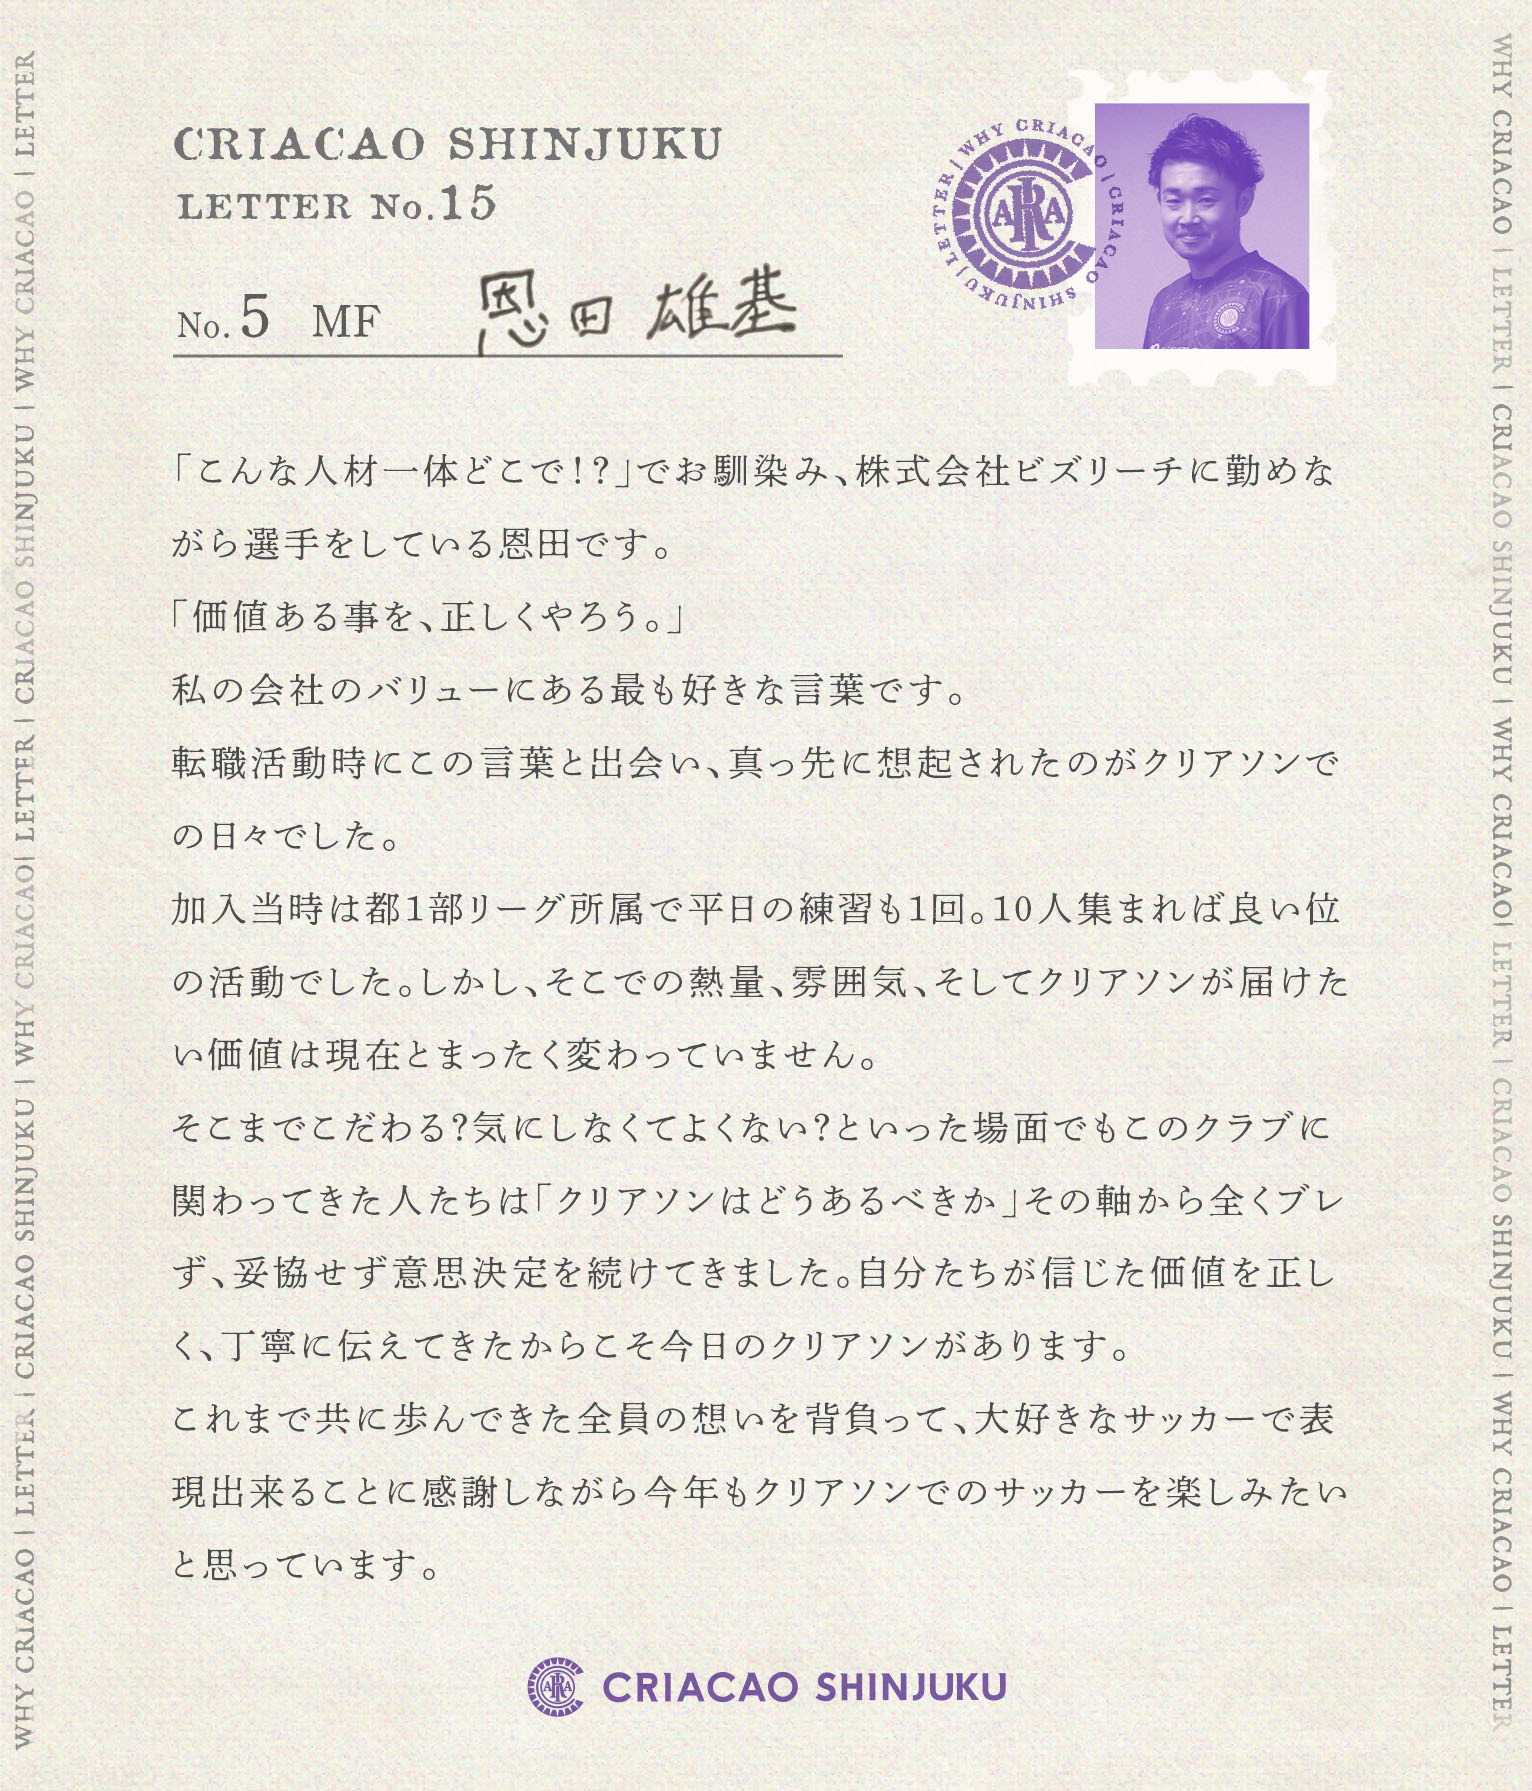 CRIACAO SHINJUKU
LETTER No.15
No.5 MF 恩田 雄基
WHY CRIACAO | CRIACAO SHINJUKU | LETTER |
ARIA
「こんな人材一体どこで！？」でお馴染み、株式会社ビズリーチに勤めな
がら選手をしている恩田です。
「価値ある事を、正しくやろう。」
私の会社のバリューにある最も好きな言葉です。
転職活動時にこの言葉と出会い、真っ先に想起されたのがクリアソンで
の日々でした。
加入当時は都1部リーグ所属で平日の練習も1回。10人集まれば良い位
の活動でした。しかし、そこでの熱量、雰囲気、そしてクリアソンが届けた
い価値は現在とまったく変わっていません。
そこまでこだわる？気にしなくてよくない？といった場面でもこのクラブに
関わってきた人たちは「クリアソンはどうあるべきか」その軸から全くブレ
ず、妥協せず意思決定を続けてきました。自分たちが信じた価値を正し
く、丁寧に伝えてきたからこそ今日のクリアソンがあります。
これまで共に歩んできた全員の想いを背負って、大好きなサッカーで表
現出来ることに感謝しながら今年もクリアソンでのサッカーを楽しみたい
と思っています。
CRIACAO SHINJUKU
WHY CRIACAO | LETTER | CRIACAO SHINJUKU | WHY CRIACAO| LETTER | CRIACAO SHINJUKU | WHY CRIACAO | LETTER
WHY CRIACAO | LETTER | CRIACAO SHINJUKU | WHY CRIACAO| LETTER | CRIACAO SHINJUKU | WHY CRIACAO | LETTER